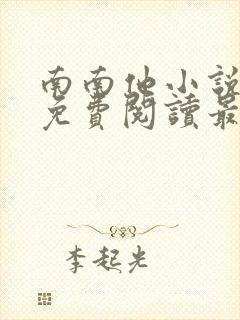 南南他小說
免費閱讀最
李起光